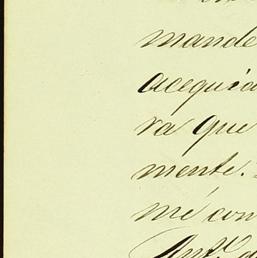 mande
acequia
ra que
mente.
me com
Ant.º d